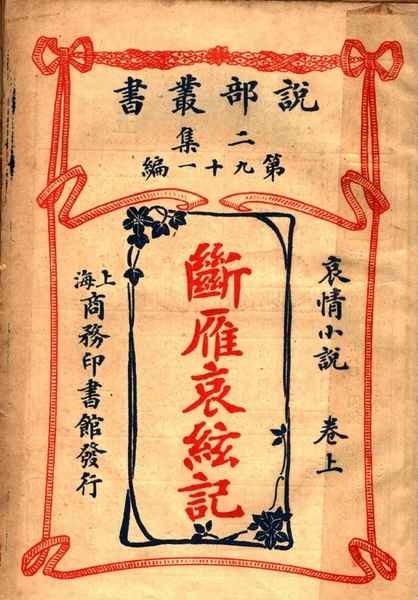 說部叢書
二集
第九十一編
哀情小說 卷上
斷雁哀絃記
上海商務印書館發行